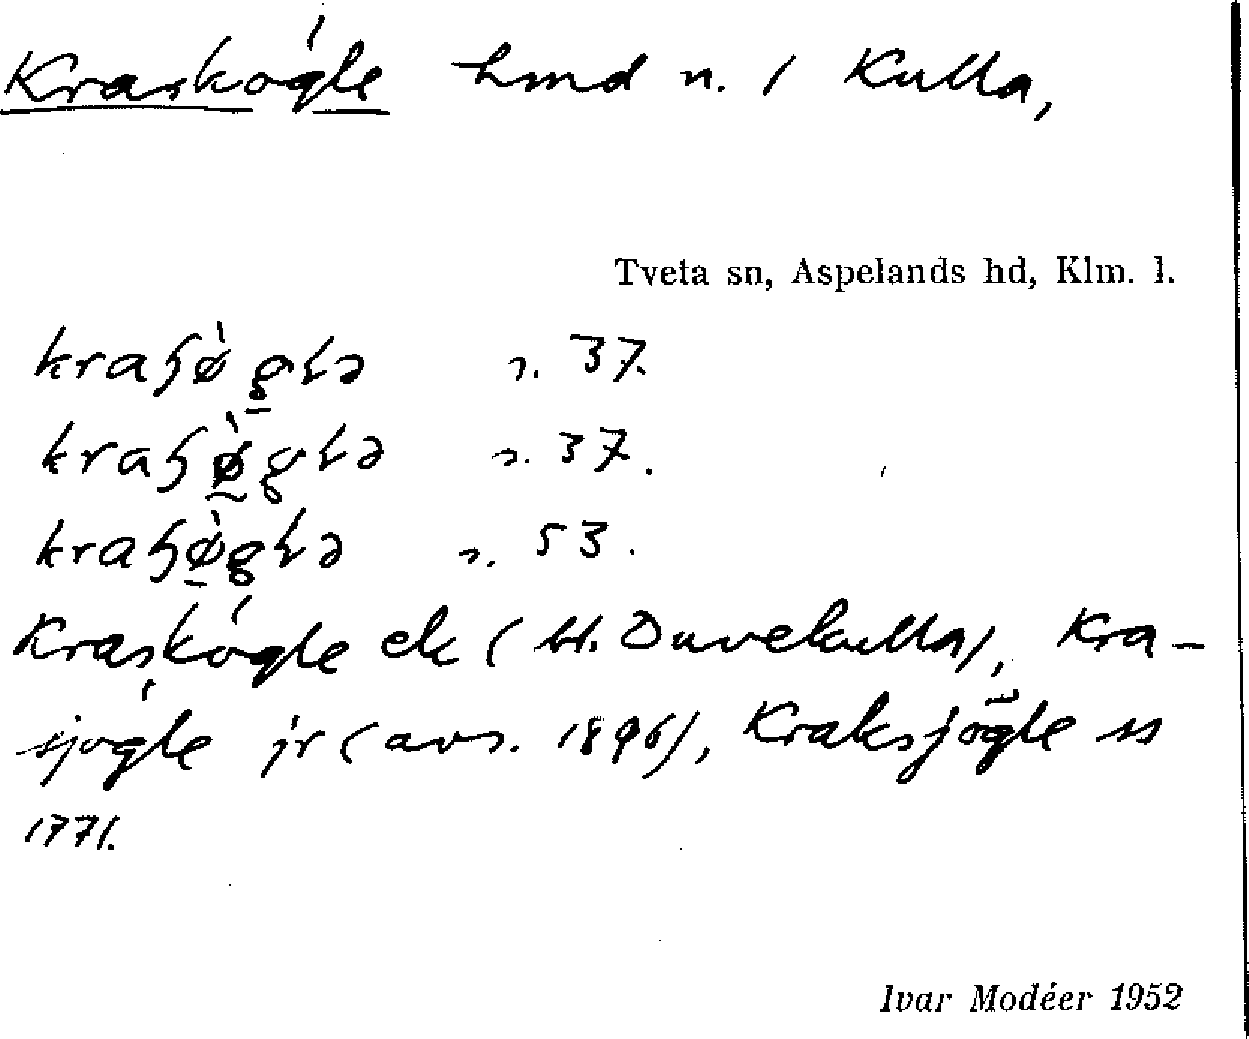 Kraskögle hmd n. / Kulla,
Tveta sn, Aspelands hd, Klm. l.
s. 37.
s. 37.
s. 53.
Kraskögle ek (bl. Duvekulla), Kra-
sjögle jr (avs. 1896), Kraksjögle ss
1771.
Ivar Modéer 1952